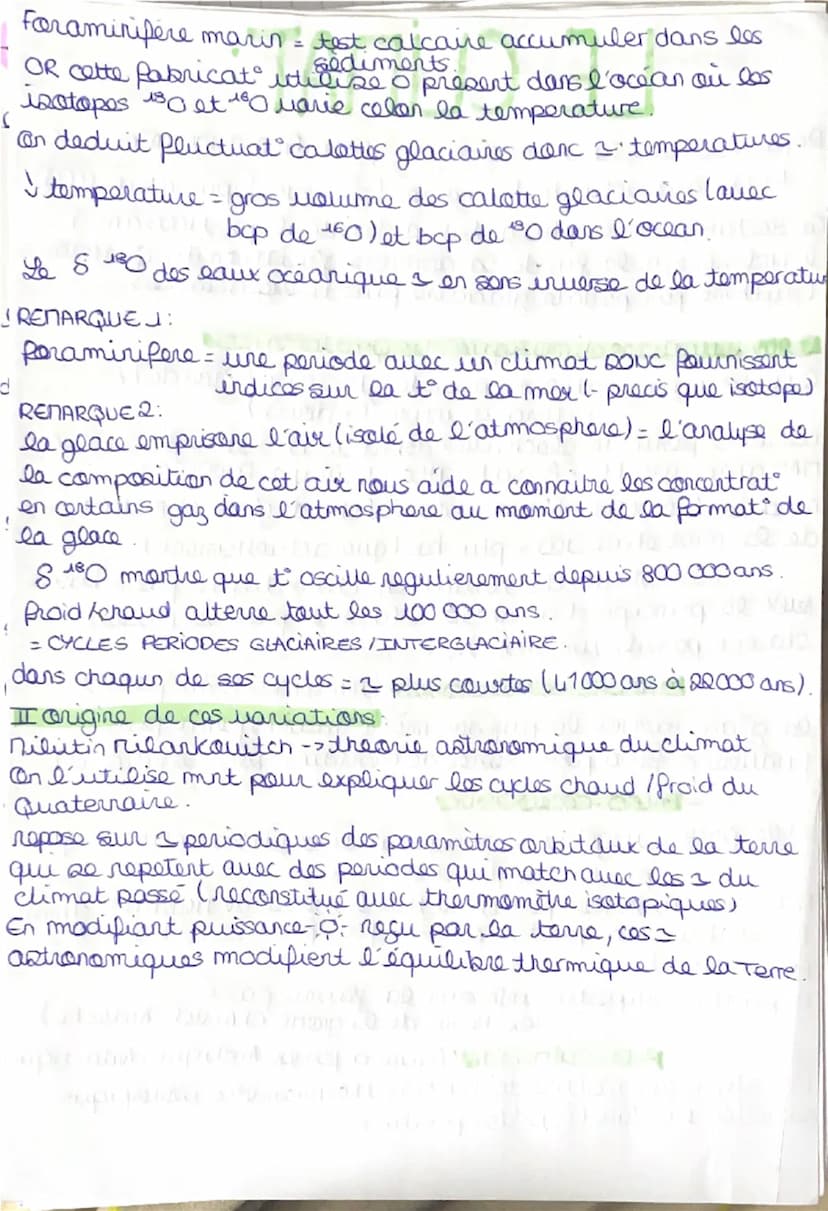 Foraminifère marin = test calcaire accumuler dans les
sédiments
OR cette fabricat° utilise O présent dans l'océan où les
isotopes ¹⁸O et ¹⁶O varie celon la temperature.
on deduit fluctuat° calottes glaciaires donc ~ temperatures.
↓ temperature = gros volume des calotte glaciaires (avec
bcp de ¹⁶O) et bcp de ¹⁸O dans l'ocean.
Le δ ¹⁸O des eaux océanique ~ en sens inverse de la temperatu
REMARQUE 1:
foraminifere = une periode avec un climat DONC fournissent
indices sur la t° de la mer (- precis que isotope)
REMARQUE 2:
la glace emprisone l'air (isolé de l'atmosphere) = l'analyse de
la composition de cet air nous aide a connaitre les concentrat°
en certains gaz dans l'atmosphere au moment de la format° de
la glace.
δ ¹⁸O montre que t° oscille regulierement depuis 800 000 ans.
froid/chaud alterne tout les 100 000 ans.
= CYCLES PERIODES GLACIAIRES / INTERGLACIAIRE.
dans chaqun de ses cycles = ~ plus courtes (↓1000 ans à 22000 ans).
II origine de ces variations.
Milutin Milankovitch -> theorie astronomique du climat
on l'utilise mnt pour expliquer les cycles chaud / froid du
Quaternaire.
repose sur ~ periodiques des paramètres orbitaux de la terre
qui se repetent avec des periodes qui match avec les ~ du
climat passé (reconstitué avec thermomètre isotopiques)
En modifiant puissance ☼ reçu par la terre, ces ~
astronomiques modifient l'équilibre thermique de la Terre.